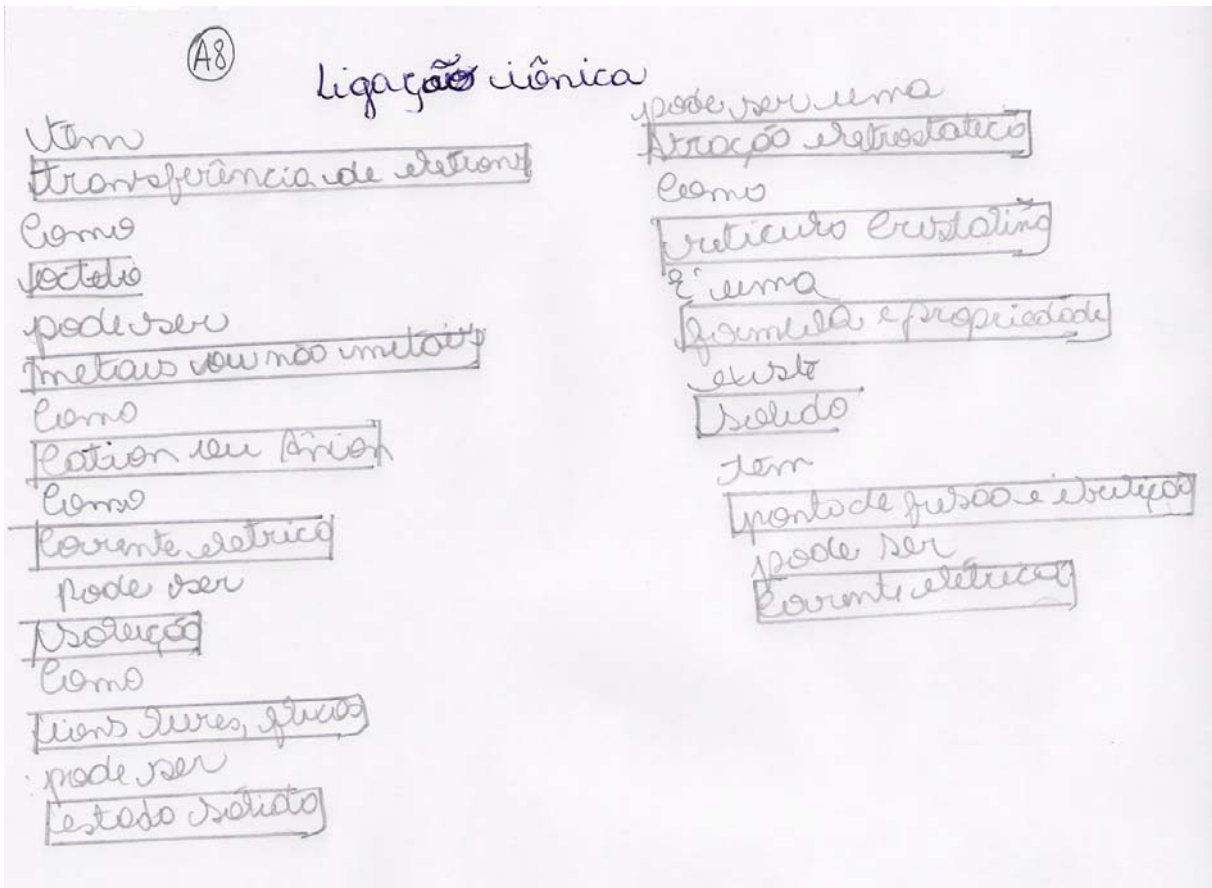 A8
Ligação iônica
tem
transferência de eletrons
como
octeto
pode ser
metais ou não metais
como
Cation ou Ânion
como
Corrente eletrica
pode ser
Solução
como
ions livres,
pode ser
estado sólido
pode ser uma
Atração eletrostatica
como
reticulo Cristalino
É uma
formula e propriedade
existe
Solido
tem
ponto de fusão e ebulição
pode ser
Corrente elétrica